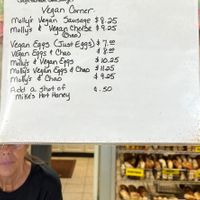 Vegetarian Sausage
Vegan Corner
Molly's Vegan Sausage $8.25
Molly's & Vegan Cheese $9.25
(Chao)
Vegan Eggs (Just Eggs) $7.00
Vegan Eggs & Chao $8.00
Molly's & Vegan Eggs $10.25
Molly's Vegan Eggs & Chao $11.25
Molly's & Chao $9.25
Add a shot of $.50
Mike's Hot Honey